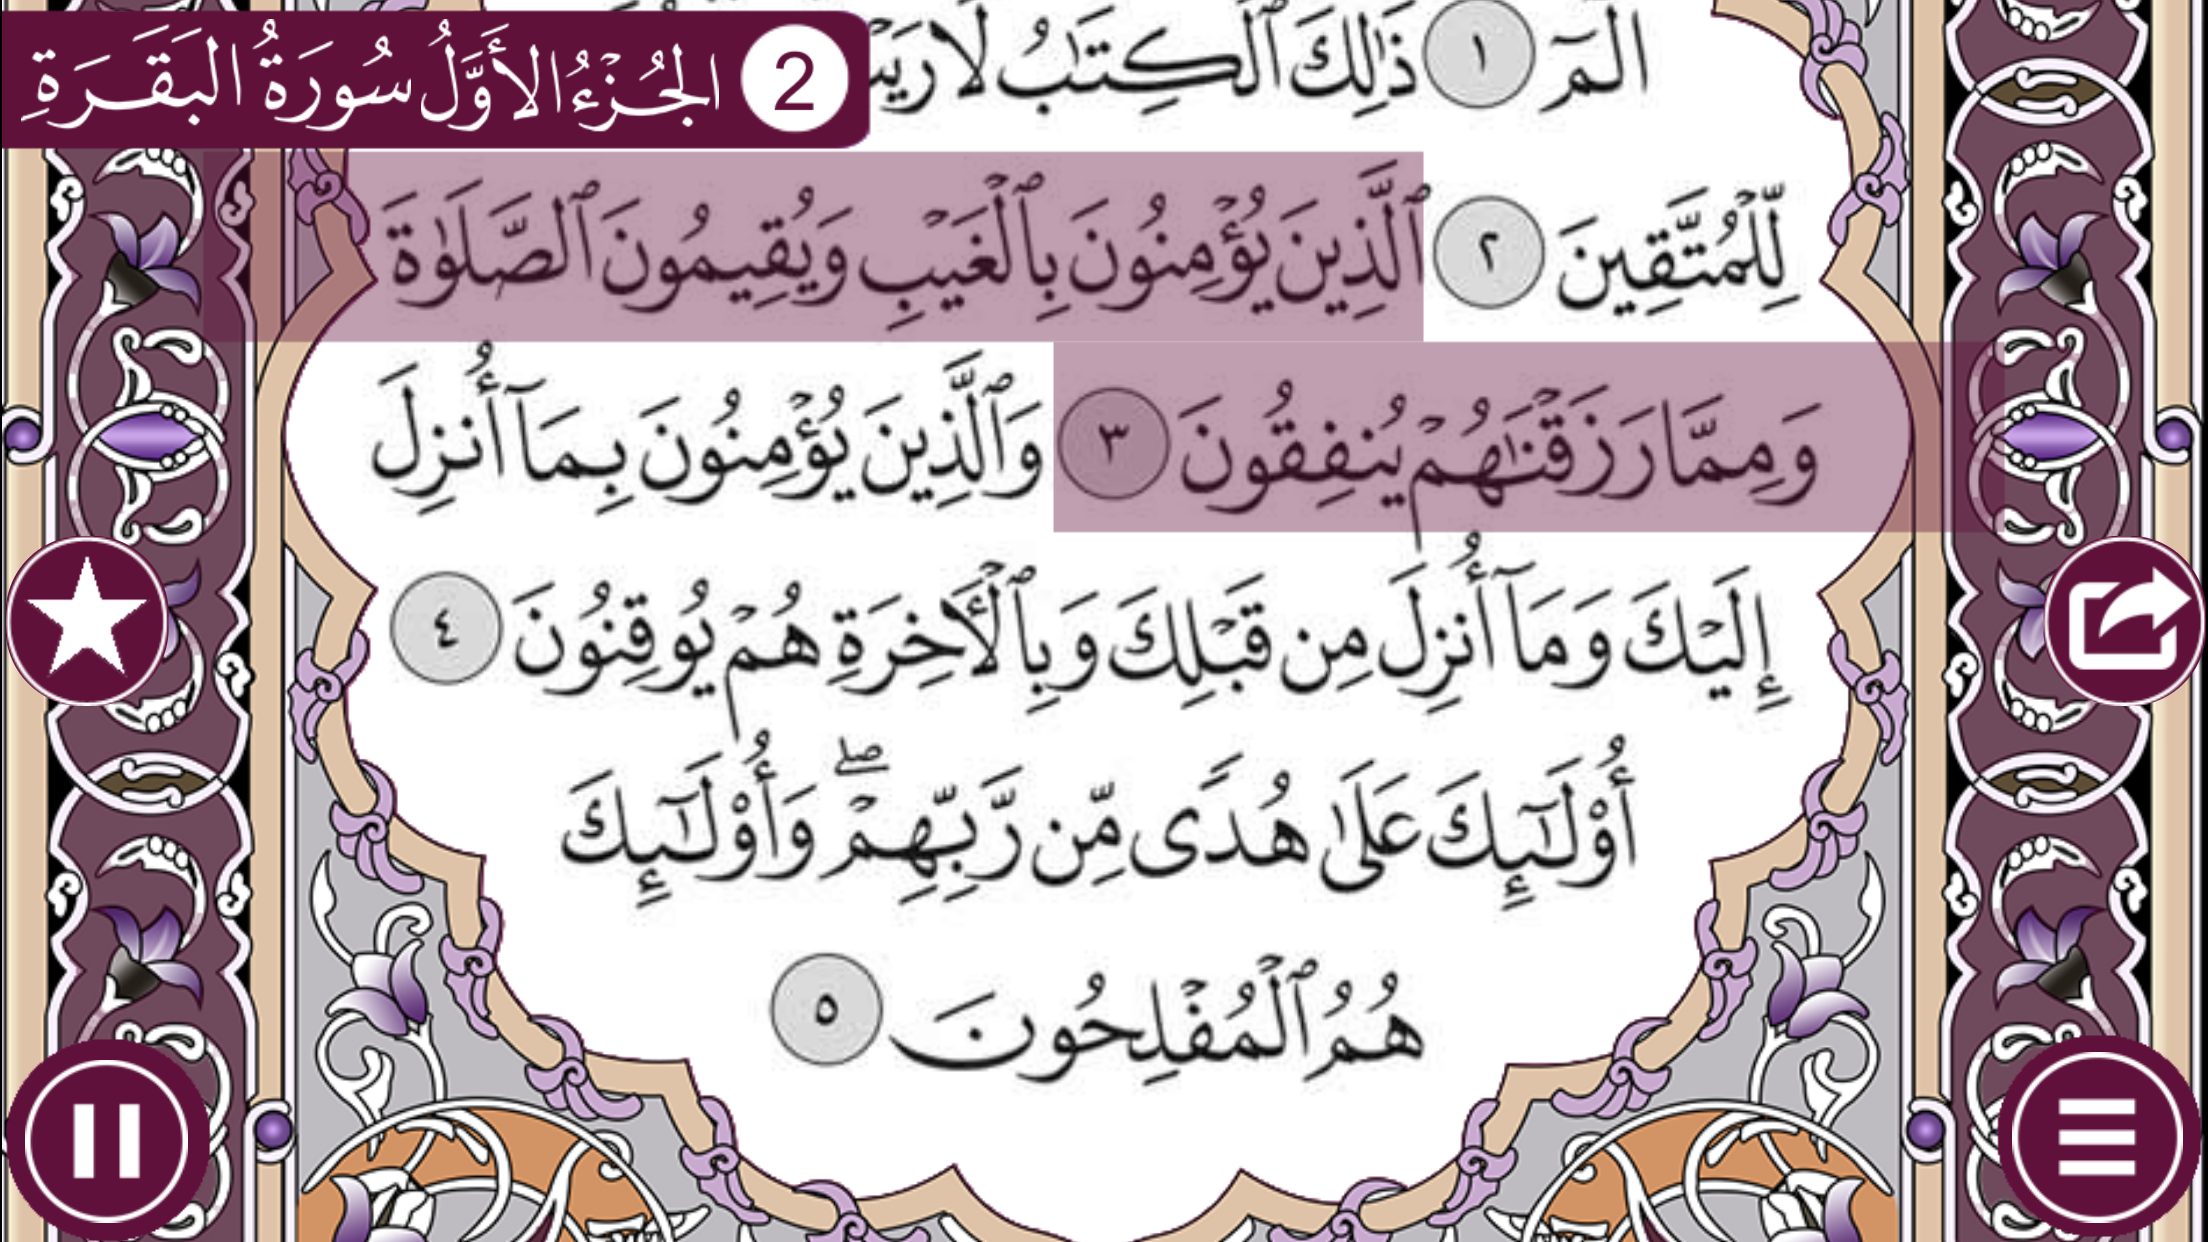 الجُزْءُ الأَوَّلُ سُورَةُ البَقَرَةِ
2
الٓمٓ ١ ذَٰلِكَ ٱلْكِتَٰبُ لَا
لِّلْمُتَّقِينَ ٢ ٱلَّذِينَ يُؤْمِنُونَ بِٱلْغَيْبِ وَيُقِيمُونَ ٱلصَّلَوٰةَ
وَمِمَّا رَزَقْنَٰهُمْ يُنفِقُونَ ٣ وَٱلَّذِينَ يُؤْمِنُونَ بِمَآ أُنزِلَ
إِلَيْكَ وَمَآ أُنزِلَ مِن قَبْلِكَ وَبِٱلْأَخِرَةِ هُمْ يُوقِنُونَ ٤
أُو۟لَٰٓئِكَ عَلَىٰ هُدًى مِّن رَّبِّهِمْ ۖ وَأُو۟لَٰٓئِكَ
هُمُ ٱلْمُفْلِحُونَ ٥